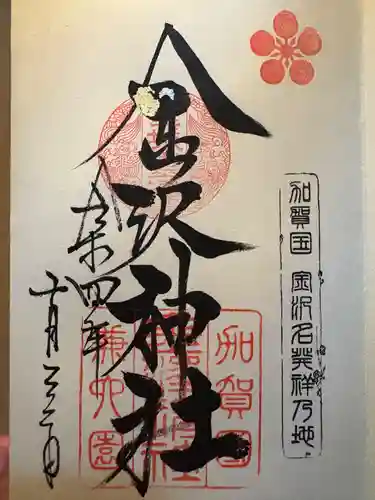 加賀国 金沢名発祥乃地
金沢神社
令和四年
十月二三日
加賀国
兼六園